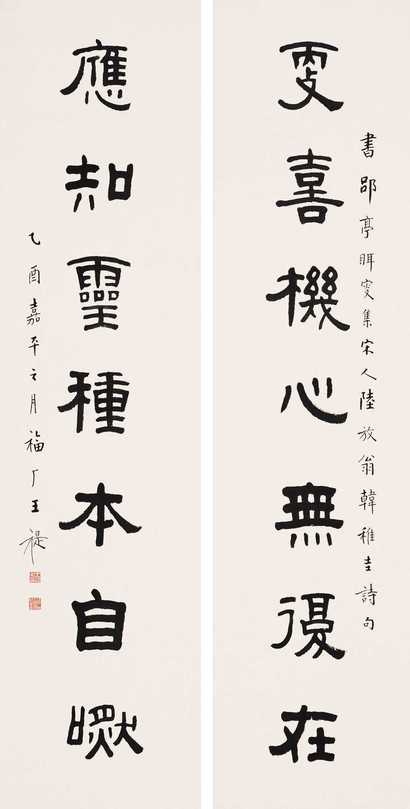 書郘亭眲叟集宋人陸放翁韓稚圭詩句
㪅喜機心無復在
應知靈種本自然
乙酉嘉平之月福厂王禔